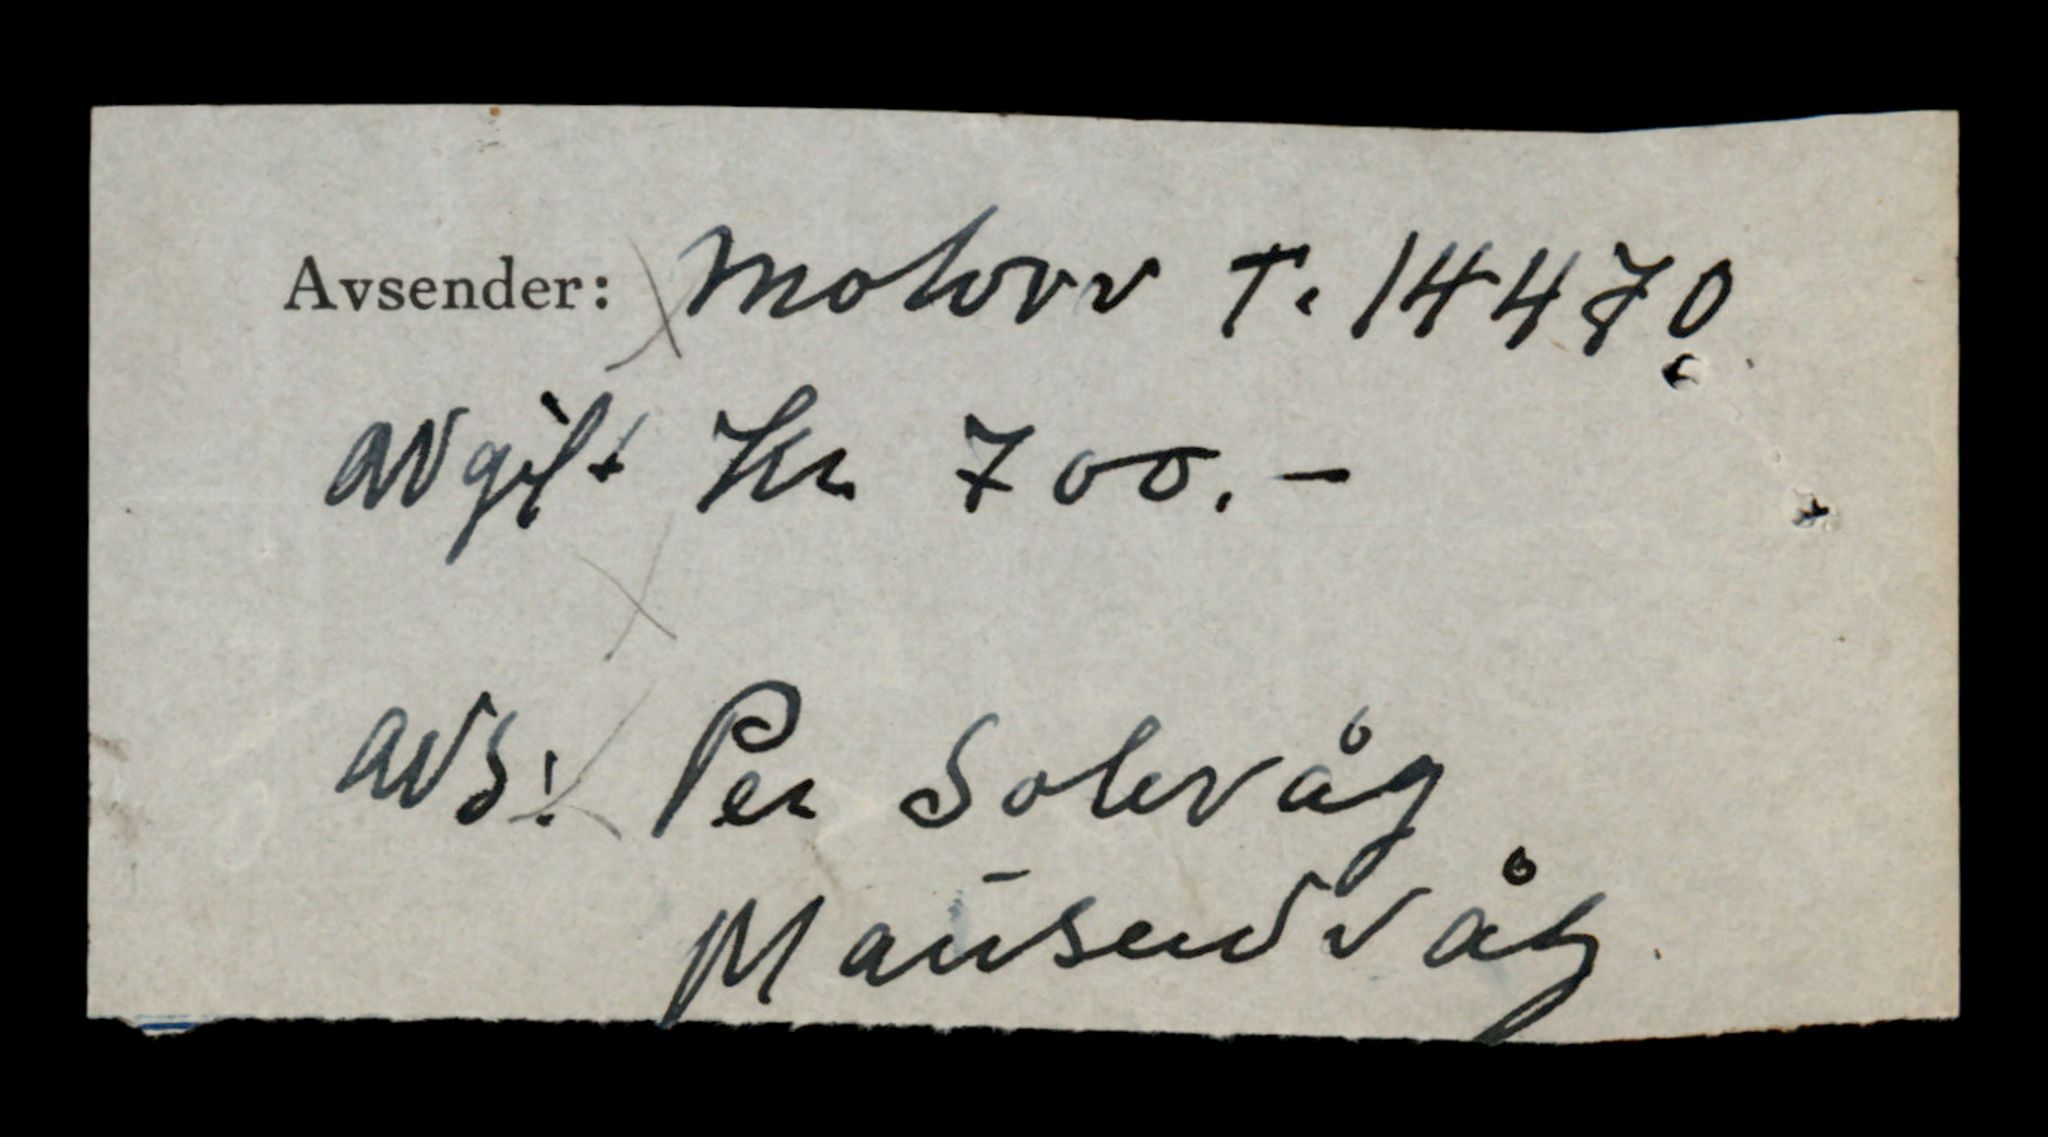 Avsender: Motorv T. 14470
avgift Kr 700.-
avs: Per Solevåg
Mausendvåg.